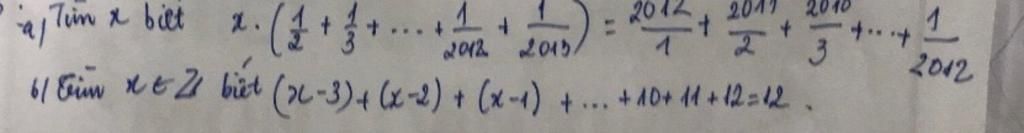 a) Tìm x biết x . (1/2 + 1/3 + ... + 1/2012 + 1/2013) = 2012/1 + 2011/2 + 2010/3 + ... + 1/2012
b) Tìm x ∈ Z biết (x-3) + (x-2) + (x-1) + ... + 10 + 11 + 12 = 12 .